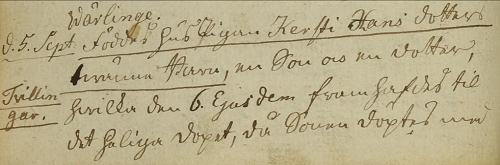 Wärlinge.
d. 5. Sept. Föddes hus Pigan Kersti Hans dotters
tvänne Barn, en Son och en dotter,
Trillin hvilka den 6. Ejusdem framhafdes til
gar. det heliga dopet, då Sonen döptes med